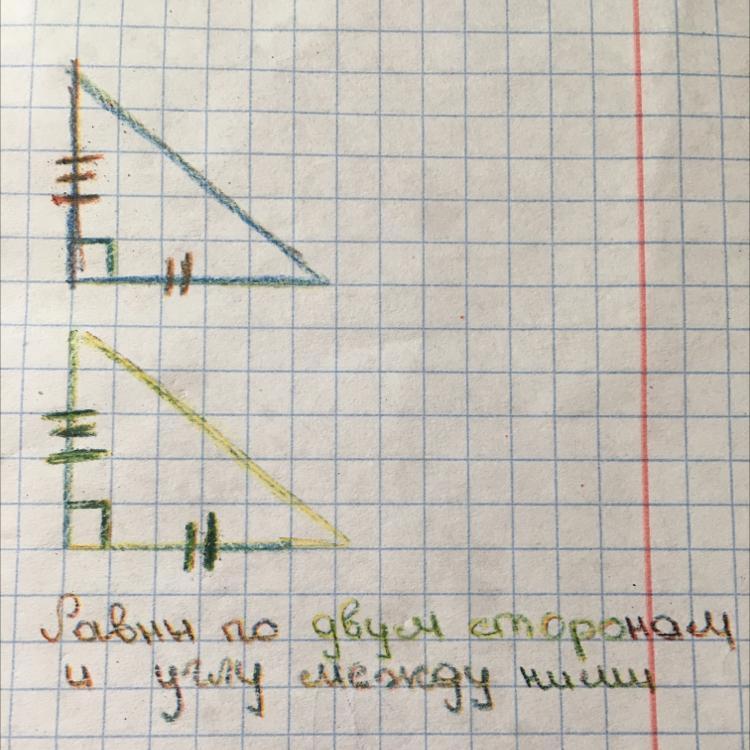 Равны по двум сторонам
и углу между ними